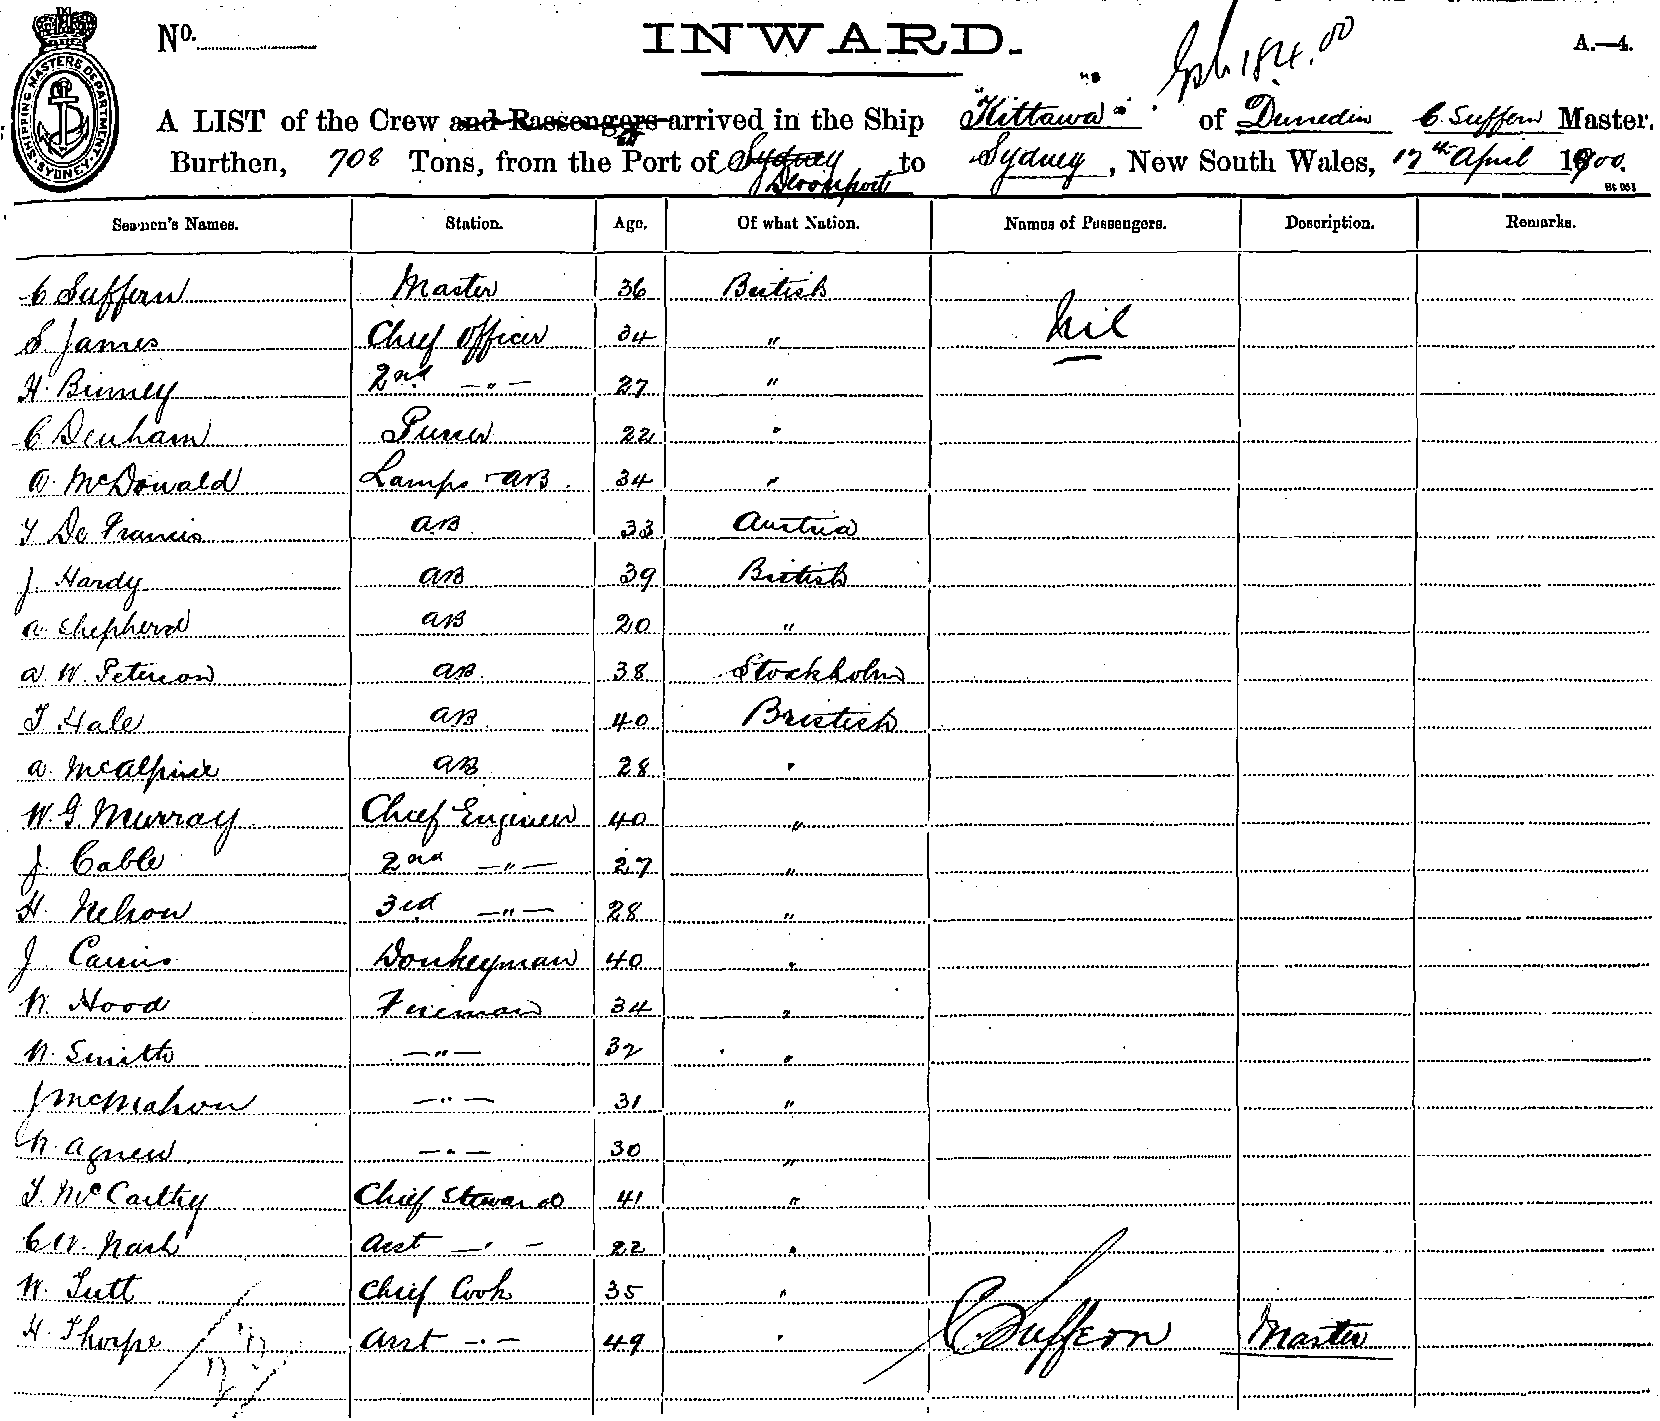 No. INWARD. A.—4.
SHIPPING MASTERS DEPARTMENT. SYDNEY.
A LIST of the Crew and Passengers arrived in the Ship "Kittawa" of Dunedin C. Suffern Master.
Burthen, 708 Tons, from the Port of Sydney to Sydney, New South Wales, 17th April 1900.
Devonport
Seamen's Names. Station. Age. Of what Nation. Names of Passengers. Description. Remarks.
C Suffern Master 36 British
S James Chief Officer 34 " Nil
H. Binney 2nd —"— 27 "
C Denham Purser 22 "
A. McDonald Lamps - AB. 34 "
T De Francis AB 33 Austria
J. Hardy AB 39 British
A Shepherd AB 20 "
A. W. Peterson AB. 38 Stockholm
T Hale AB. 40 Bristish
A. McAlpine AB 28 "
W. G. Murray Chief Engineer 40 "
J. Cable 2nd —"— 27 "
H. Nelson 3rd —"— 28 "
J Cairns Donkeyman 40 "
W. Hood Fireman 34 "
W. Smith —"— 32 "
J McMahon —"— 31 "
W. Agnew —"— 30 "
T. McCarthy Chief Steward 41 "
C W. Nash Asst —"— 22 "
W. Tutt Chief Cook 35 "
H. Thorpe Asst —"— 49 " C Suffern Master